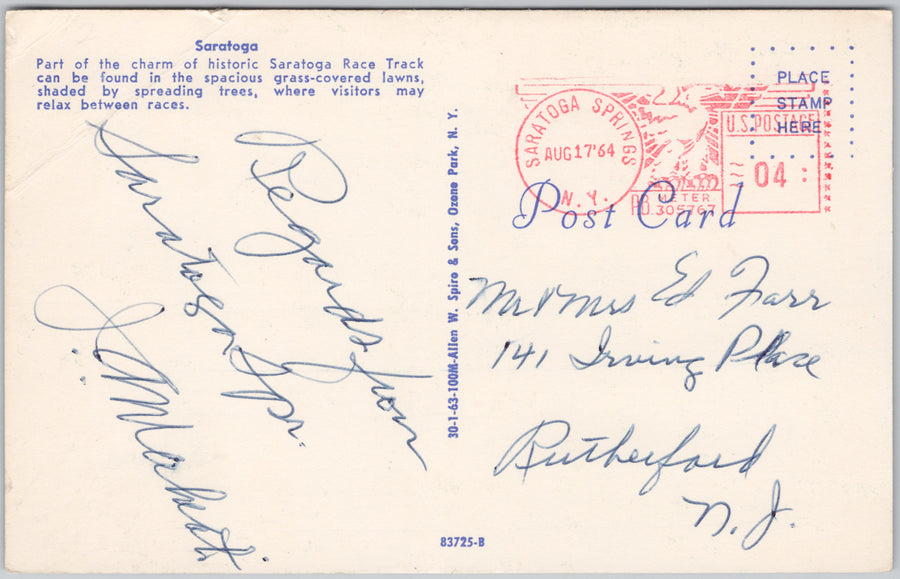 Saratoga
Part of the charm of historic Saratoga Race Track
can be found in the spacious grass-covered lawns,
shaded by spreading trees, where visitors may
relax between races.
Regards from
Saratoga Spr.
J.
30-1-63-100M-Allen W. Spiro & Sons, Ozone Park, N. Y.
83725-B
PLACE
STAMP
HERE
SARATOGA SPRINGS
AUG17'64
N.Y.
U.S.POSTAGE
04
PB METER
305767
Post Card
Mr & Mrs Ed Farr
141 Irving Place
Rutherford
N. J.